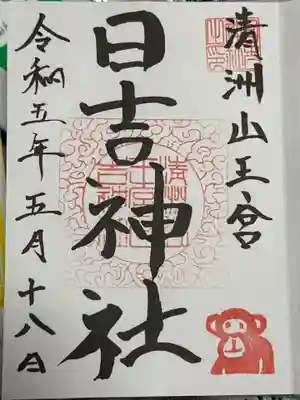 清洲山王宮
日吉神社
令和五年五月十八日